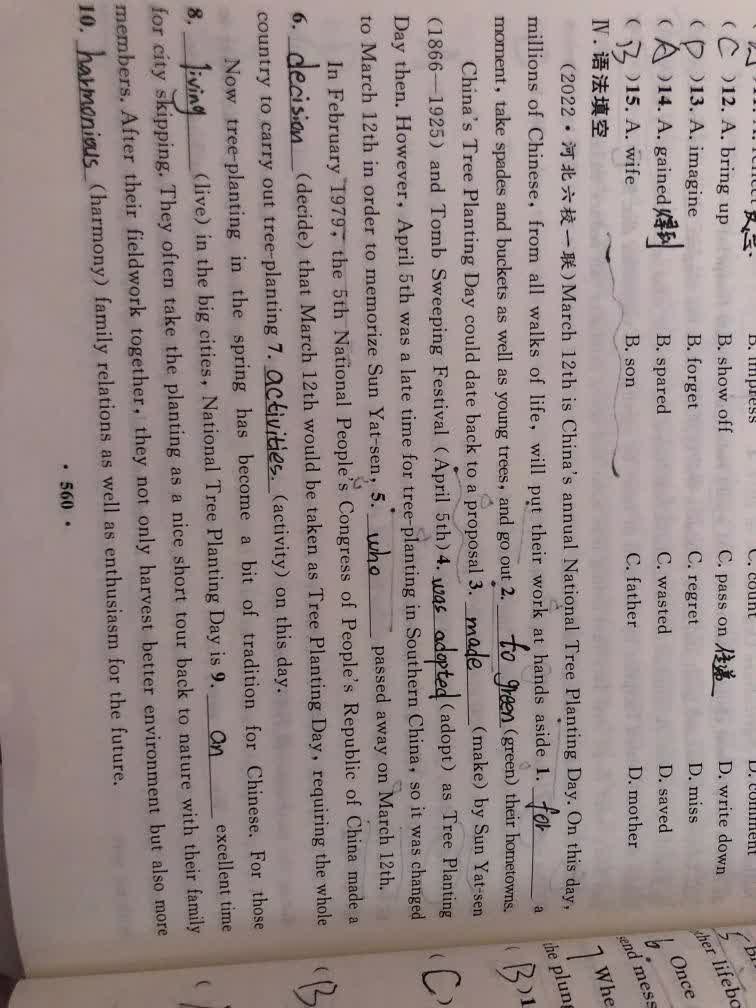 (C)12. A. bring up B. show off C. pass on 传递 D. write down
(D)13. A. imagine B. forget C. regret D. miss
(A)14. A. gained 得到 B. spared C. wasted D. saved
(B)15. A. wife B. son C. father D. mother
Ⅳ. 语法填空
(2022·河北六校一联)March 12th is China's annual National Tree Planting Day. On this day,
millions of Chinese, from all walks of life, will put their work at hands aside 1. for a
moment, take spades and buckets as well as young trees, and go out 2. to green (green) their hometowns.
China's Tree Planting Day could date back to a proposal 3. made (make) by Sun Yat-sen
(1866—1925) and Tomb Sweeping Festival (April 5th) 4. was adopted (adopt) as Tree Planting
Day then. However, April 5th was a late time for tree-planting in Southern China, so it was changed
to March 12th in order to memorize Sun Yat-sen, 5. who passed away on March 12th.
In February 1979, the 5th National People's Congress of People's Republic of China made a
6. decision (decide) that March 12th would be taken as Tree Planting Day, requiring the whole
country to carry out tree-planting 7. activities. (activity) on this day.
Now tree-planting in the spring has become a bit of tradition for Chinese. For those
8. living (live) in the big cities, National Tree Planting Day is 9. an excellent time
for city skipping. They often take the planting as a nice short tour back to nature with their family
members. After their fieldwork together, they not only harvest better environment but also more
10. harmonious (harmony) family relations as well as enthusiasm for the future.
· 560 ·
(B)1
(C)
(B
Once
Whe
the plun